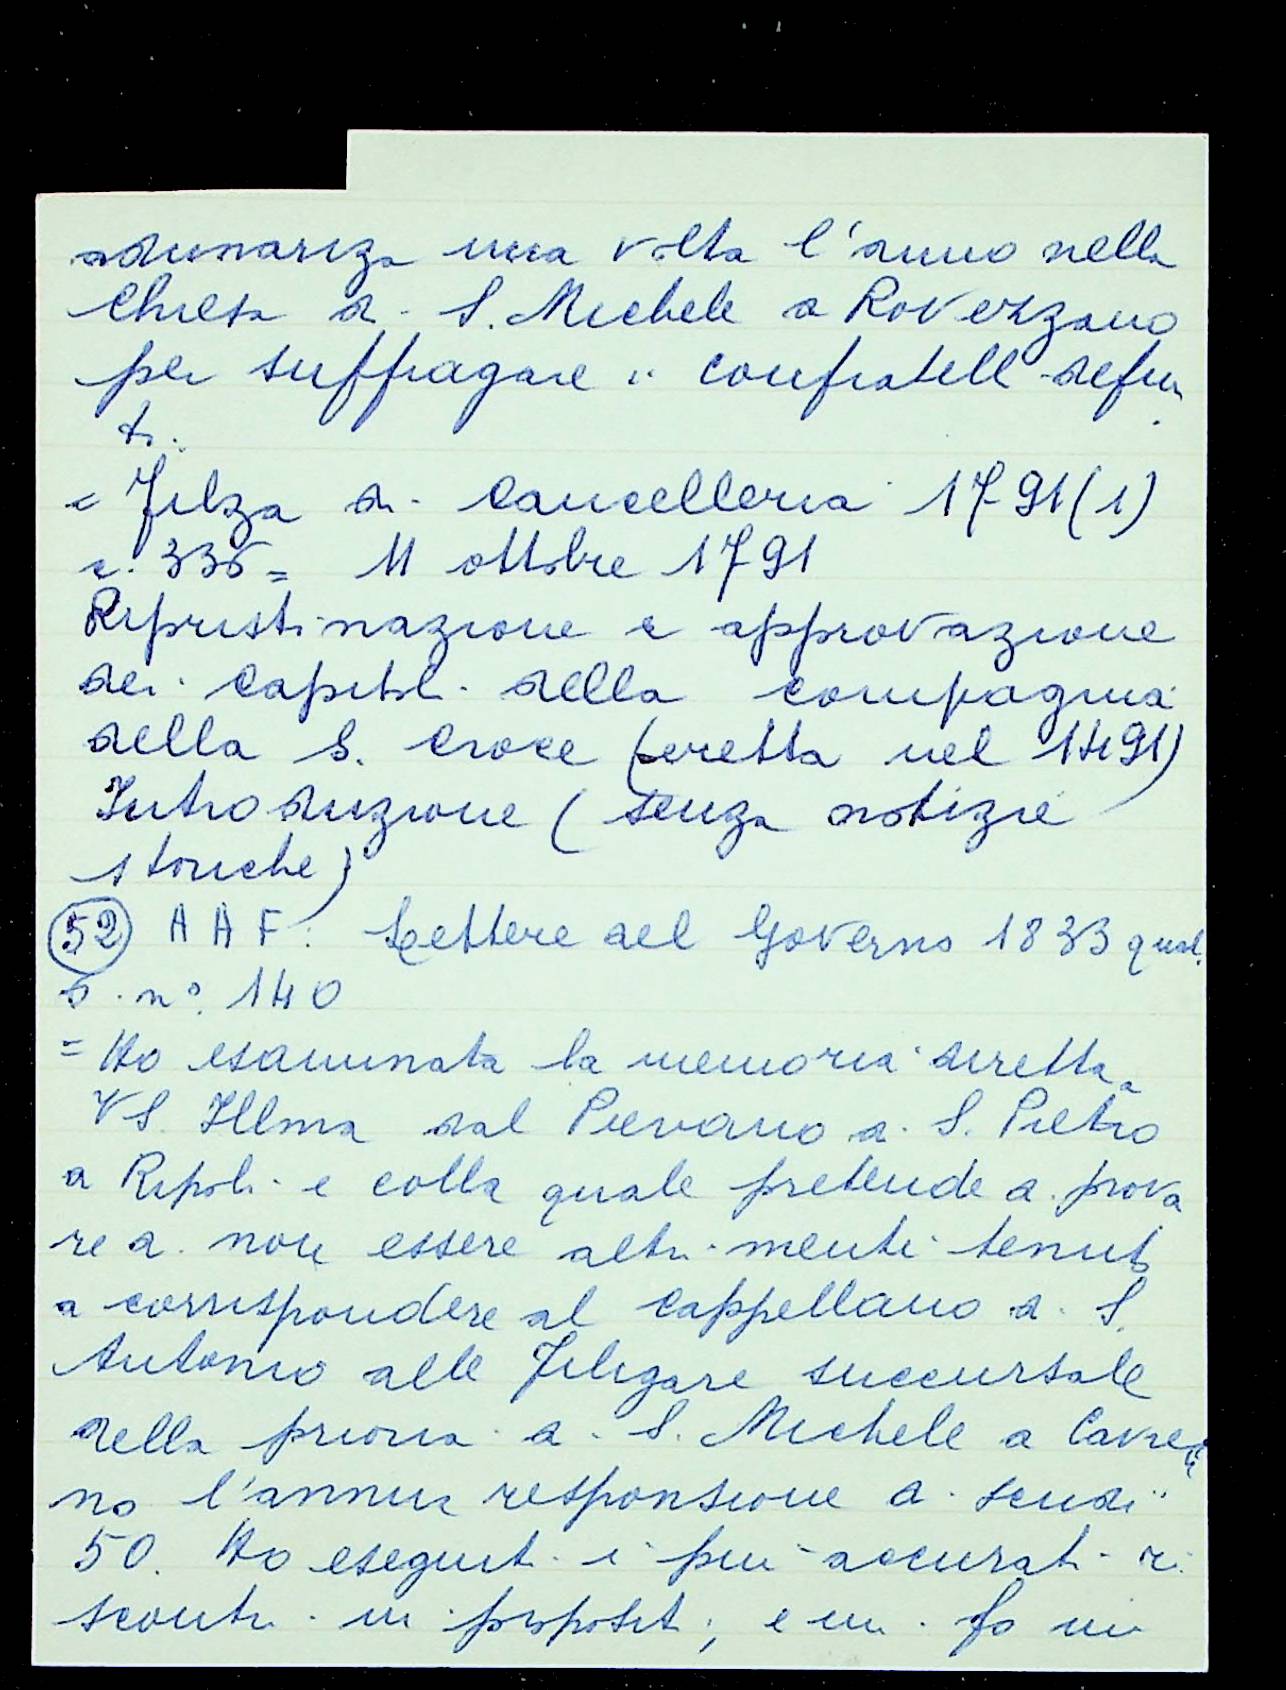 adunanza una volta l'anno nella
Chiesa di S. Michele a Rovezzano
per suffragare i confratelli defun
ti.
= Filza di Cancelleria 1791(1)
c. 336 = 11 ottobre 1791
Ripristinazione e approvazione
dei capitoli della compagnia
della S. Croce (eretta nel 1491)
Introduzione (senza notizie
storiche)
52 A A F. Lettere del Governo 1833 qual.
6. n°. 140
= Ho esaminata la memoria diretta a
VS. Illma dal Pievano di S. Pietro
a Ripoli e colla quale pretende di prova
re di non essere altrimenti tenuto
a corrispondere al cappellano di S.
Antonio alle Filigare succursale
della prioria di S. Michele a Cavre
no l'annua responsione di scudi
50. Ho eseguiti i piu accurati ri
scontri in proposito, e mi fo un